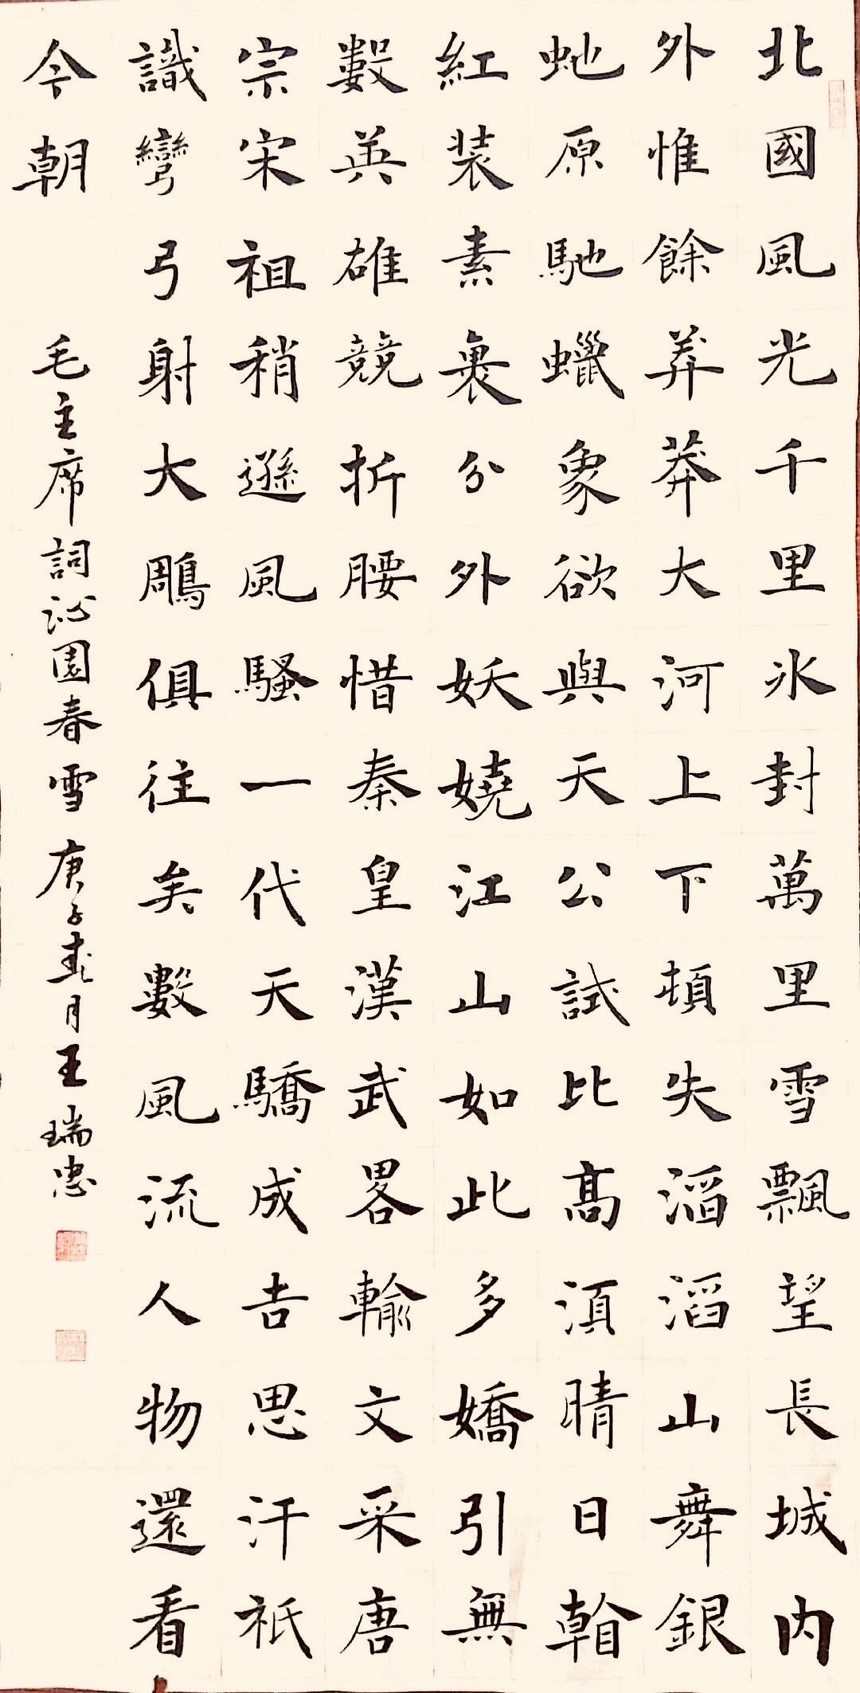 北國風光千里冰封萬里雪飄望長城內
外惟餘莽莽大河上下頓失滔滔山舞銀
虵原馳蠟象欲與天公試比高湏晴日㫪
紅裝素裹分外妖嬈江山如此多嬌引無
數英雄競折腰惜秦皇漢武畧輸文采唐
宗宋祖稍遜風騷一代天驕成吉思汗祇
識彎弓射大鵰俱往矣數風流人物還看
今朝
毛主席詞沁園春雪 庚子春月王瑞忠